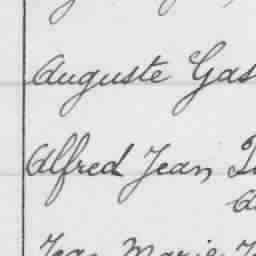 Auguste Gas
Alfred Jean
Jean Marie